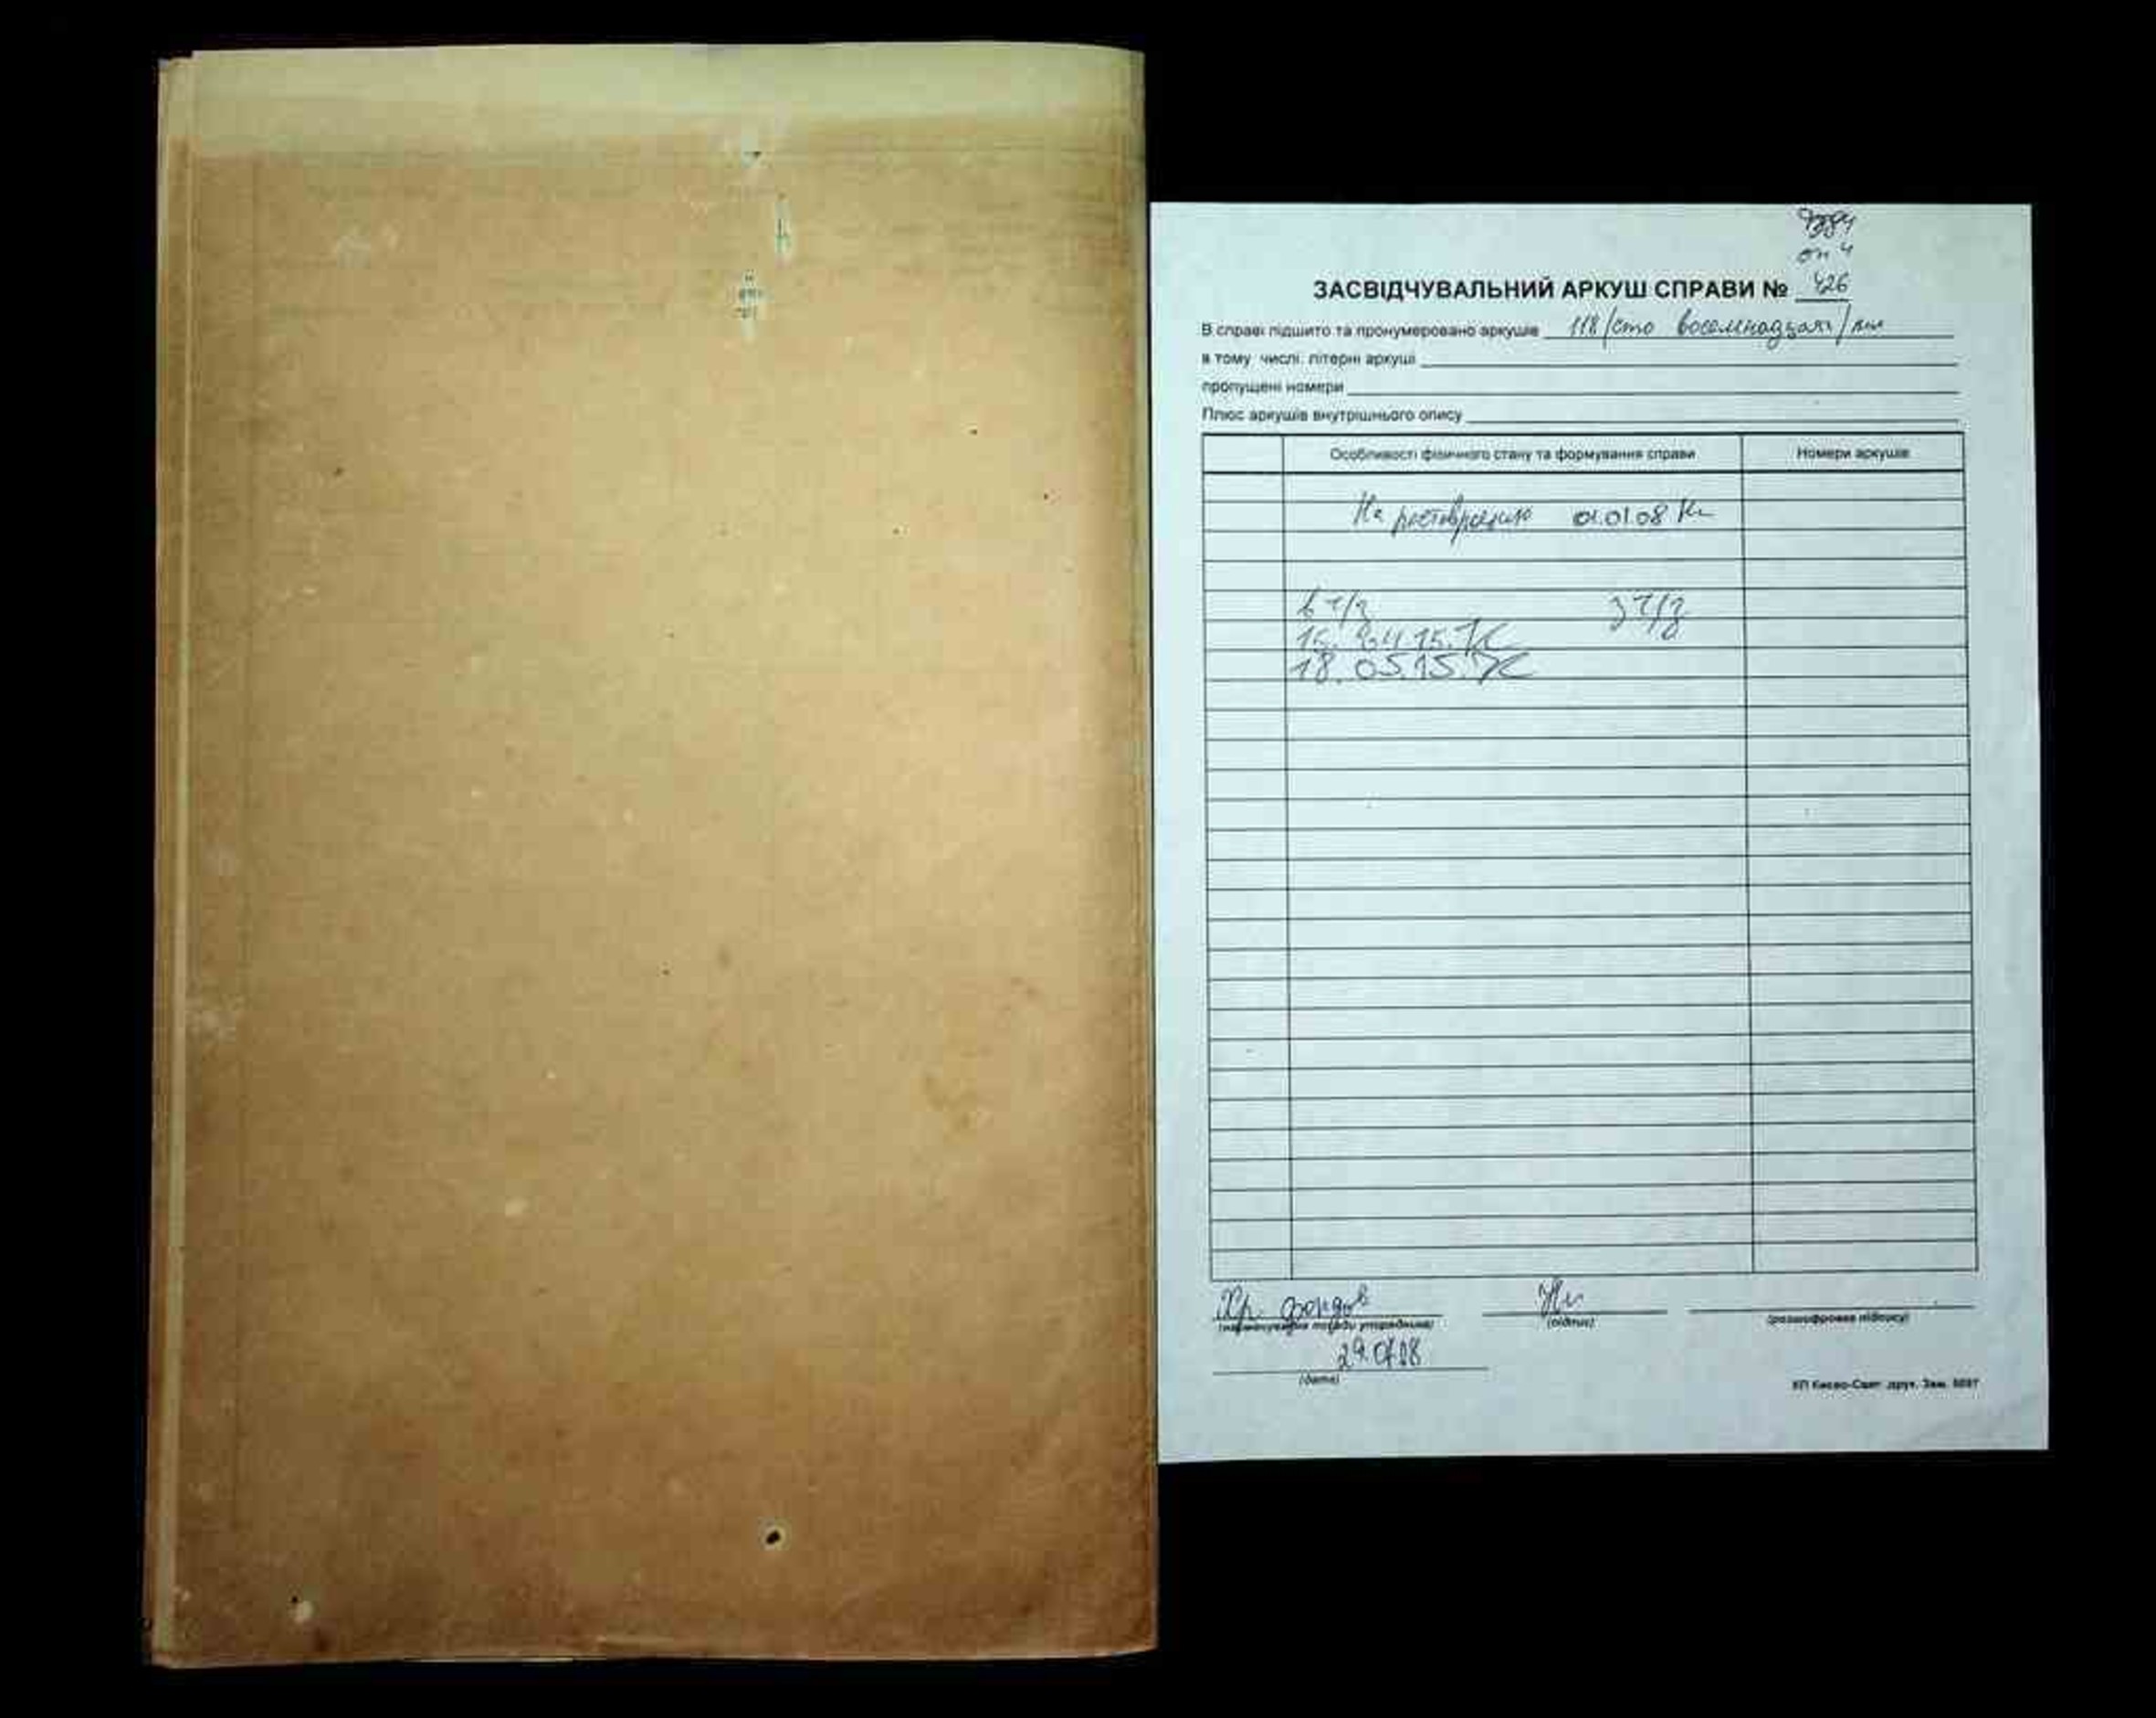 оп 4
ЗАСВІДЧУВАЛЬНИЙ АРКУШ СПРАВИ № 426
В справі підшито та пронумеровано аркушів 118/сто восемнадцать/
в тому числі: літерні аркуші
пропущені номери
Плюс аркушів внутрішнього опису
Особливості фізичного стану та формування справи Номери аркушів
На реставрацию 01.01.08
в ч/з з ч/з
15.04.15.
18.05.15.
Хр. фондов
(найменування посади упорядника) (підпис) (розшифровка підпису)
(дата)
КП Києво-Свят. друк. Зам.